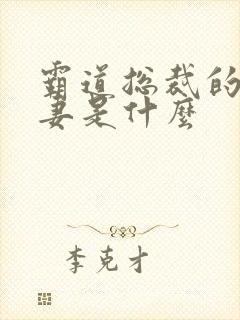 霸道总裁的
妻是什麼
李克才